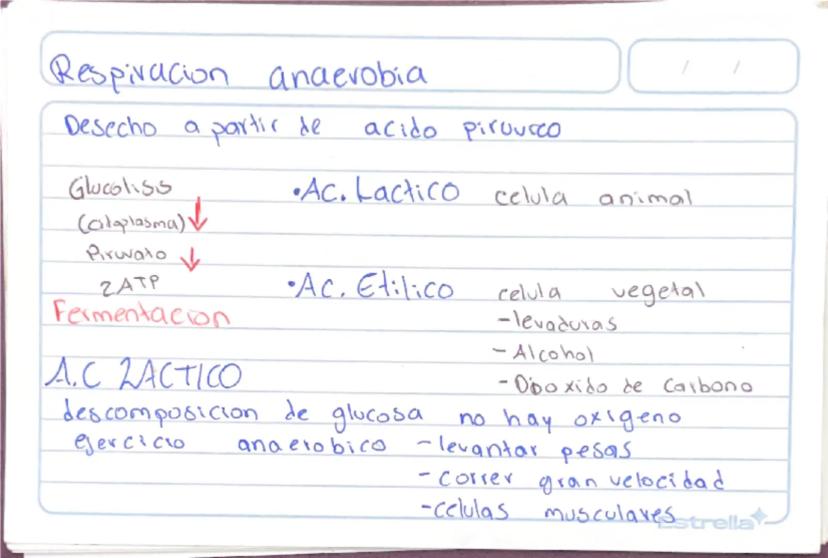 Respiracion anaerobia
/ /
Desecho a partir de acido piruvico
Glucolisis
(citoplasma)
Piruvato
2ATP
Fermentacion
•Ac. Lactico celula animal
•Ac. Etilico celula vegetal
-levaduras
- Alcohol
- Dioxido de Carbono
A.C LACTICO
descomposicion de glucosa no hay oxigeno
ejercicio anaerobico - levantar pesas
- correr gran velocidad
-celulas musculares
Estrella